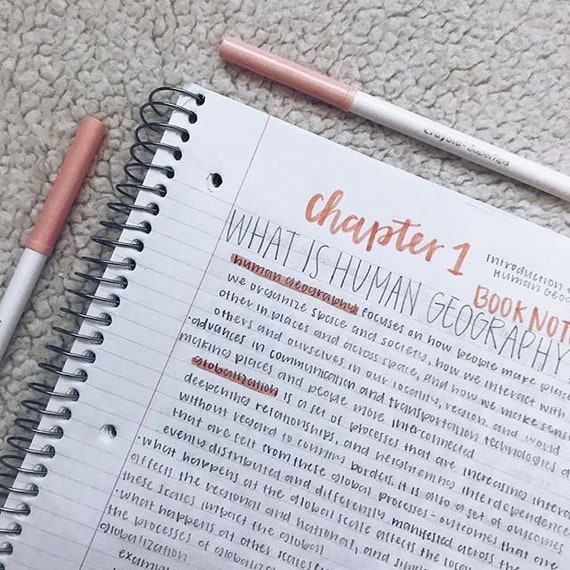 Crayola SuperTips
chapter 1
Introduction
Human Geo
BOOK NOT
WHAT IS HUMAN GEOGRAPHY
human geography focuses on how people make place
we organize space and society, how we interact with
other in places and across space, and how we make sens
others and ourselves in our locality, region, and world
·advances in communication and transportation technologies a
making places and people more interconnected
globalization is a set of processes that are increasing intera
deepening relationships, and heightening interdependence
without regard to country borders. it is also a set of outcomes
that are felt from these global processes - outcomes that are
evenly distributed and differently manifested across the
·what happens at the global scale affects the local
affects the regional and national, and
these scales impact the global
·what happens at other scales
the processes of
globalization
exam